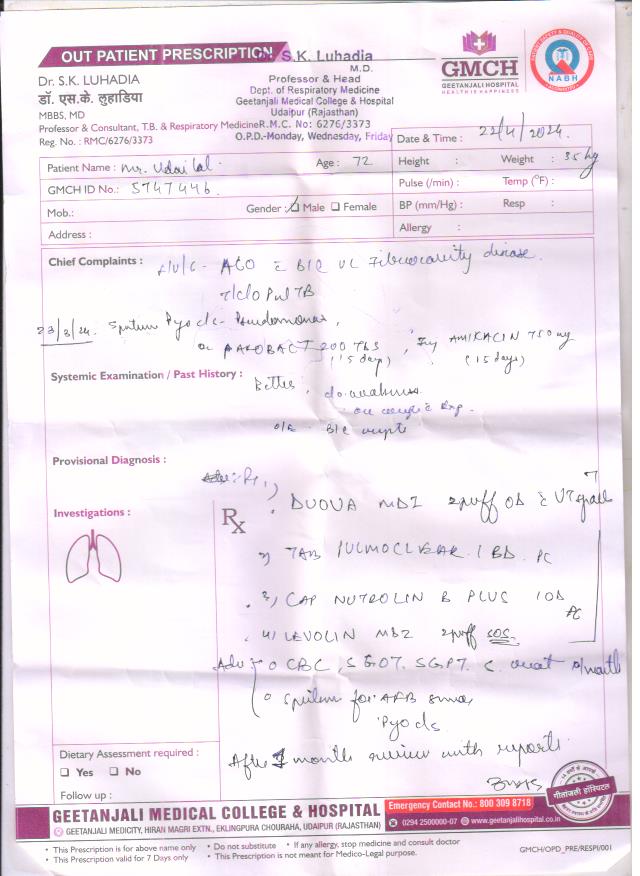 OUT PATIENT PRESCRIPTION
Dr. S.K. Luhadia
M.D.
Professor & Head
Dept. of Respiratory Medicine
Geetanjali Medical College & Hospital
Udaipur (Rajasthan)
R.M.C. No: 6276/3373
O.P.D.-Monday, Wednesday, Friday
GMCH
GEETANJALI HOSPITAL
HEALTH IS HAPPINESS
NABH
Dr. S.K. LUHADIA
डॉ. एस.के. लुहाडिया
MBBS, MD
Professor & Consultant, T.B. & Respiratory Medicine
Reg. No. : RMC/6276/3373
Date & Time : 22/4/2024
Patient Name : Mr. Udai Lal Age : 72
Height : Weight : 35 kg
GMCH ID No.: 5747446
Pulse (/min) : Temp (°F) :
Mob.: Gender : Male Female
BP (mm/Hg) : Resp :
Address : Allergy :
Chief Complaints : ACO c B/L UL Fibrocavity disease
Pul TB
23/3/24. Sputum Pyo c/s - Pseudomonas,
200 TDS, Inj AMIKACIN 750 mg
(15 day) (15 days)
Systemic Examination / Past History :
Better, c/o weakness
B/L
Provisional Diagnosis :
Adv :- Rx
Investigations :
Rx 1) DUOVA MDI 2 puff OD c
2) TAB PULMOCLEAR 1 BD PC
3) CAP NUTROLIN B PLUS 1 OD
PC
4) LEVOLIN MDI 2 puff SOS
Adv CBC, SGOT, SGPT, S. creat
Sputum for AFB smear
Pyo c/s
After 1 month review with reports
Dietary Assessment required :
Yes No
Follow up :
गीतांजली हॉस्पिटल
GEETANJALI MEDICAL COLLEGE & HOSPITAL
GEETANJALI MEDICITY, HIRAN MAGRI EXTN., EKLINGPURA CHOURAHA, UDAIPUR (RAJASTHAN)
Emergency Contact No.: 800 309 8718
0294 2500000-07 www.geetanjalihospital.co.in
• This Prescription is for above name only • Do not substitute • If any allergy, stop medicine and consult doctor
• This Prescription valid for 7 Days only • This Prescription is not meant for Medico-Legal purpose.
GMCH/OPD_PRE/RESPI/001